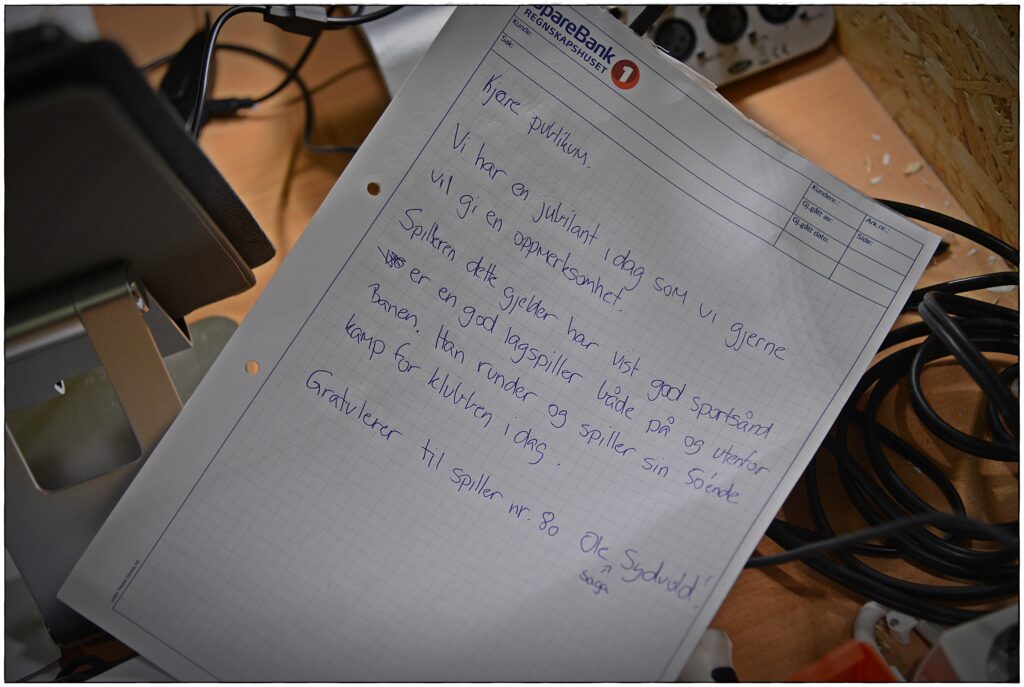 SpareBank 1
REGNSKAPSHUSET
Kunde:
Sak:
Kundenr.:
Ark.nr.:
Gj.gått av:
Side:
Gj.gått dato:
Kjære publikum.
Vi har en jubilant i dag som vi gjerne
vil gi en oppmerksomhet.
Spilleren dette gjelder har vist god sportsånd
er en god lagspiller både på og utenfor
Banen. Han runder og spiller sin 50'ende
kamp for klubben i dag.
Gratulerer til spiller nr. 80 Ole Sydvold!
Saga